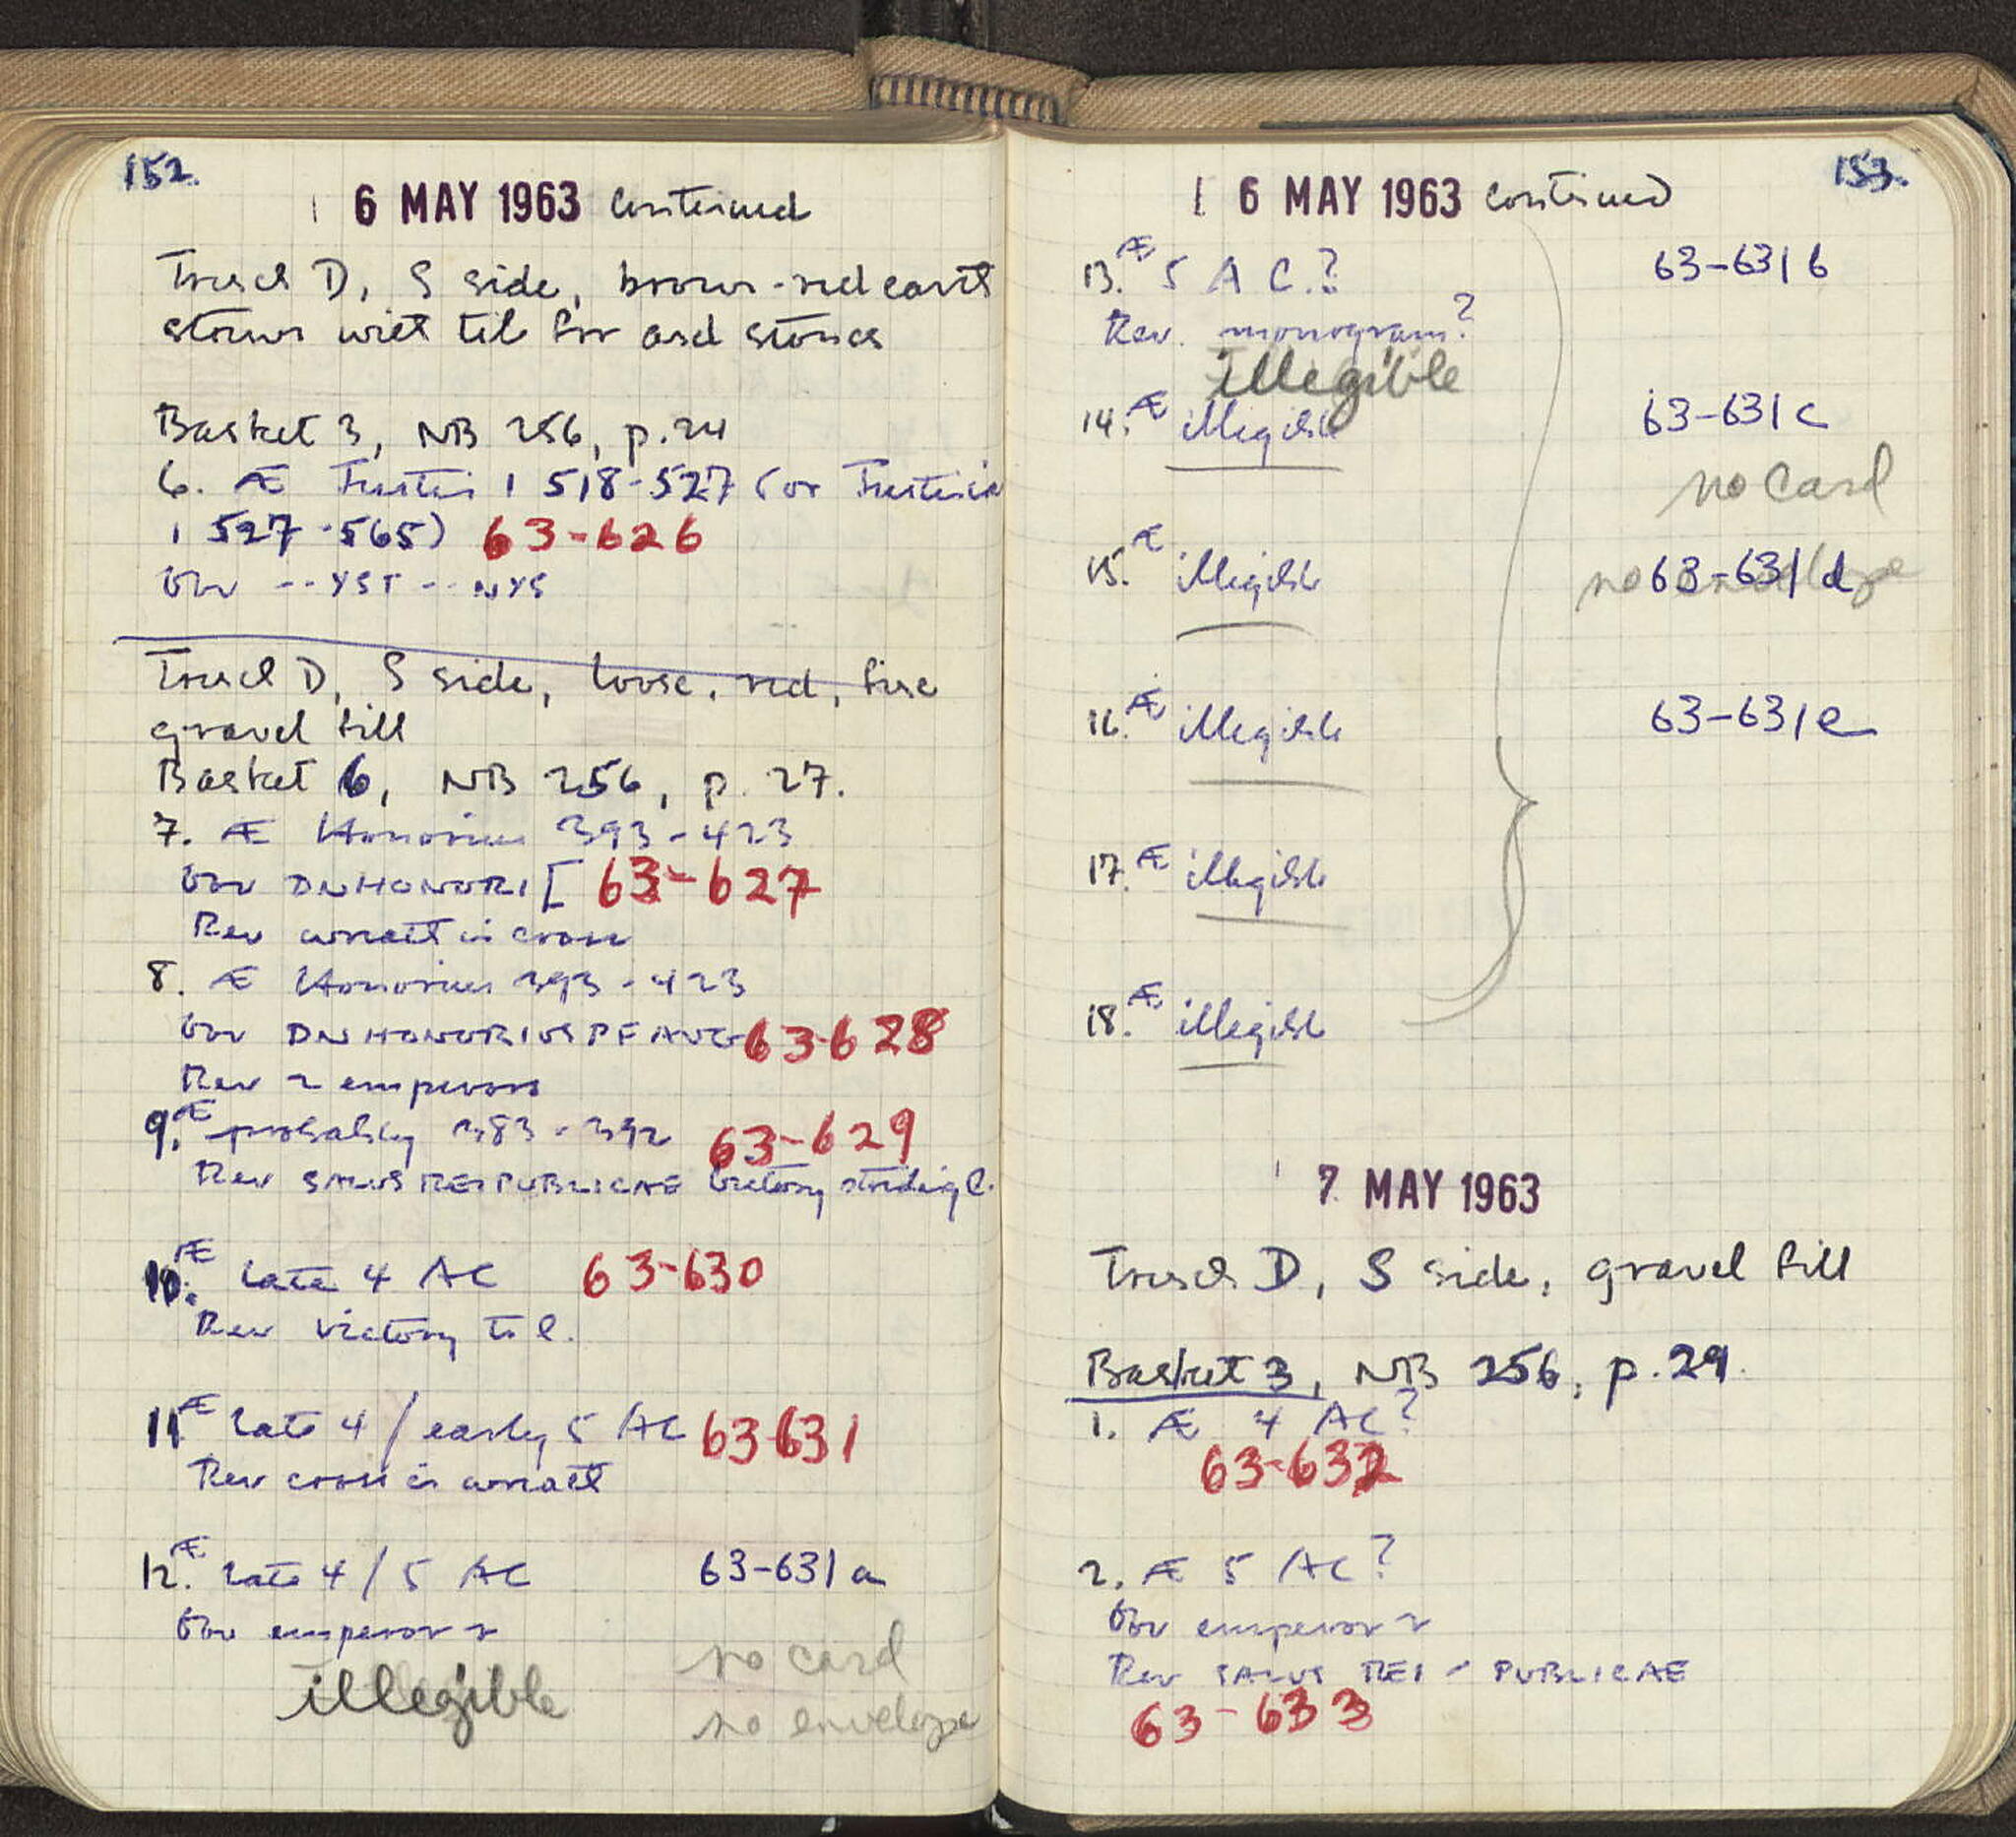 152.
6 MAY 1963 continued
Trench D, S side, brown-red earth
strewn with tile frr and stones
Basket 3, NB 256, p. 24
6. Æ Justin I 518-527 (or Justinian
I 527-565) 63-626
Obv --YST--NYS
Trench D, S side, loose, red, fine
gravel fill
Basket 6, NB 256, p. 27.
7. Æ Honorius 393-423
Obv DNHONORI[ 63-627
Rev wreath in cross
8. Æ Honorius 393-423
Obv DNHONORIVSPFAVG 63-628
Rev 2 emperors
9. Æ probably 383-392 63-629
Rev SALVS REIPUBLICAE Victory striding l.
10. Æ late 4 AC 63-630
Rev Victory to l.
11 Æ late 4/early 5 AC 63-631
Rev cross in wreath
12. Æ late 4/5 AC 63-631a
Obv emperor r
no card
illegible
no envelope
153.
6 MAY 1963 continued
13. Æ 5 AC.? 63-631b
Rev. monogram?
illegible
14. Æ illegible 63-631c
no card
15. Æ illegible 63-631d
no envelope
16. Æ illegible 63-631e
17. Æ illegible
18. Æ illegible
7 MAY 1963
Trench D, S side, gravel fill
Basket 3, NB 256, p. 29.
1. Æ 4 AC?
63-632
2. Æ 5 AC?
Obv emperor r
Rev SALVS REI-PUBLICAE
63-633